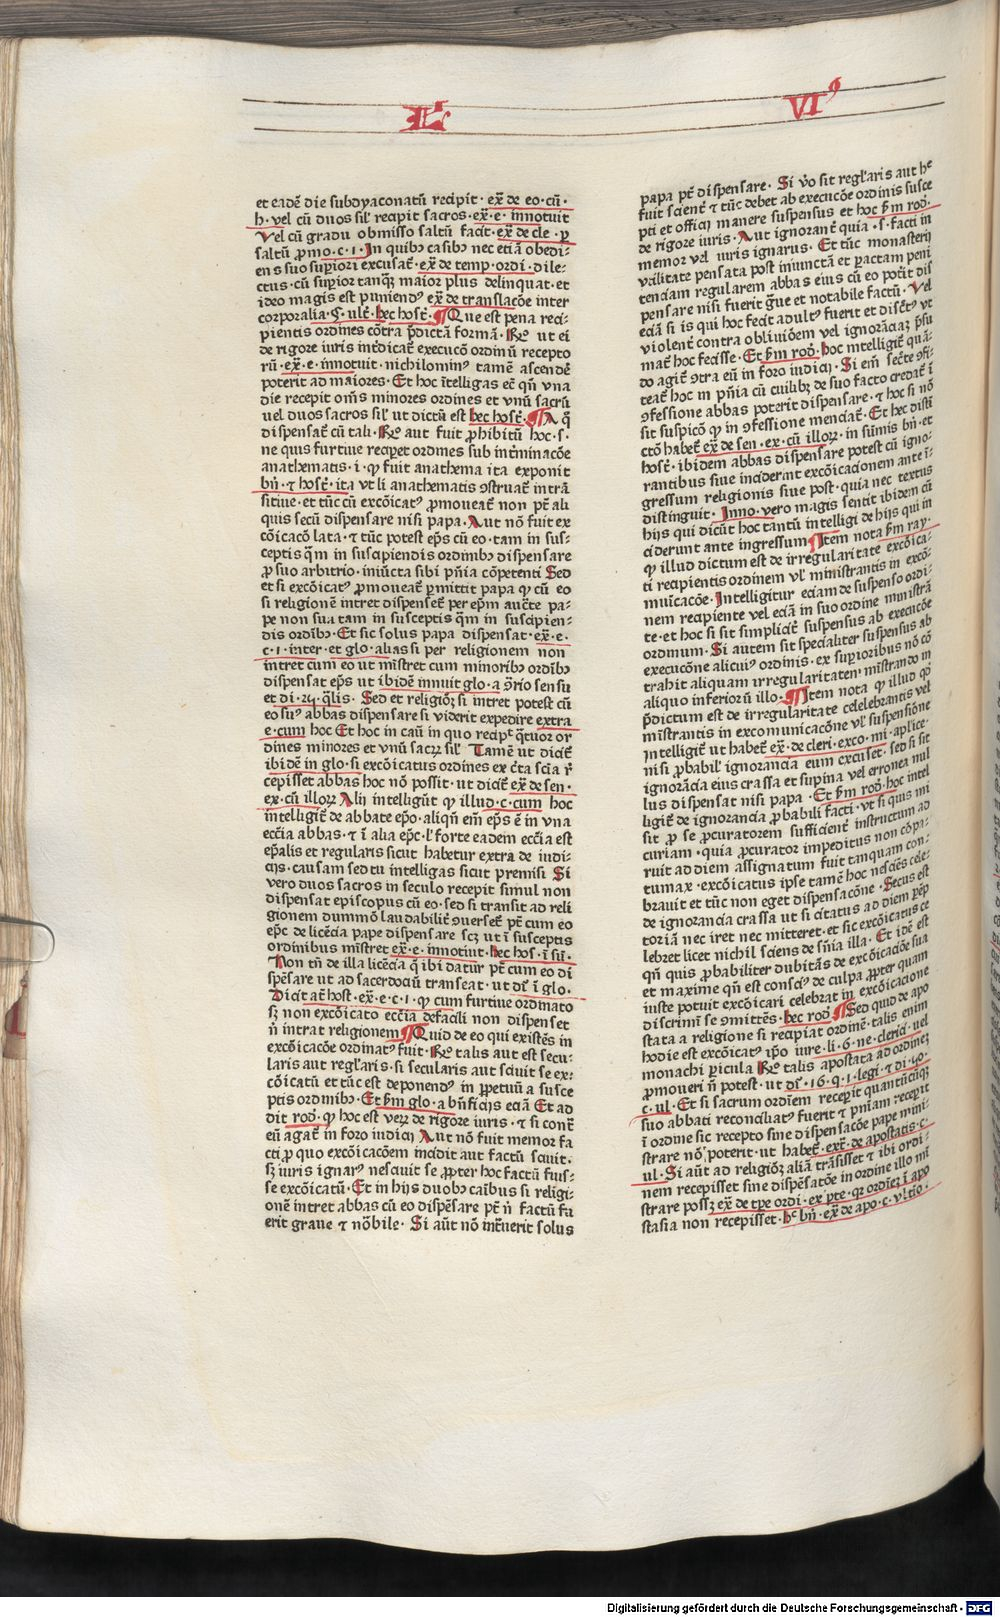 L VI⁹
et eadē die subdyaconatū recipit · ex̄ de eo · cū ·
h · vel cū duos sil' recipit sacros · ex̄ · e · innotuit
Vel cū gradu obmisso saltū facit · ex̄ de cle · ꝑ
saltū ꝓmo · c · i · In quibꝫ casibꝫ nec etiā obedi-
ens suo supiori excusat̄ · ex̄ de temp · ordi · dile-
ctus · cū supior tanqꝫ maior plus delinquat · et
ideo magis est puniendꝰ ex̄ de translacōe inter
corporalia · hec host̄ · ¶ Que est pena reci-
pientis ordines cōtra p̄dictā formā · Ro ut ei
de rigore iuris int̄dicat̄ execucō ordinū recepto
rū · ex̄ · e · innotuit · nichilominꝰ tamē ascendē
poterit ad maiores · Et hoc ītelligas ec̄ qn̄ vna
die recepit om̄s minores ordines et vnū sacrū
uel duos sacros sil' ut dictū est hec host̄ · ¶ A q̄
dispensat̄ cū tali · Ro aut fuit ꝓhibitū hoc · s ·
ne quis furtiue recip̄et ordines sub int̄minacōe
anathematis · i · ꝙ fuit anathema ita exponit
bn̄ · ⁊ host̄ · ita vt li anathematis ꝯstruat̄ intrā
sitiue · et tūc cū excōicatꝰ ꝓmoueat̄ non pt̄ ali
quis secū dispensare nisi papa · Aut nō fuit ex
cōicacō lata · ⁊ tūc potest ep̄s cū eo · tam in sus-
ceptis q̄m in suscipiendis ordinibꝫ dispensare
ꝓ suo arbitrio · iniūcta sibi pn̄ia cōpetenti Sed
et si excōicatꝰ ꝓmoueat̄ ꝑmittit papa ꝙ cū eo
si religionē intret dispenset̄ per ep̄m auct̄e pa-
pe non sua tam in susceptis q̄m in suscipien-
dis ordībꝫ · Et sic solus papa dispensat · ex̄ · e ·
c · i · inter · et glo · alias si per religionem non
intret cum eo ut mīstret cum minoribꝫ ordībꝫ
dispensat ep̄s ut ibidē innuit glo · a ꝯ̄rio sensu
Sed et religiōꝫ si intret potest cū
eo suꝰ abbas dispensare si viderit expedire extra
e · cum hoc Et hoc in cāu in quo recipᵗ q̄tuor or
dines minores et vnū sacꝝ sil' Tamē ut dicit̄
ibidē in glo · si excōicatus ordines ex c̄ta scīa r̄
cepisset abbas hoc nō possit · ut dicit̄ ex̄ de sen ·
ex · cū illoꝝ Alij intelligūt ꝙ illud · c · cum hoc
intelligit̄ de abbate ep̄o · aliqn̄ em̄ ep̄s ē in vna
ecc̄ia abbas · ⁊ ī alia ep̄c · l' forte eadem ecc̄ia est
ep̄alis et regularis sicut habetur extra de iudi-
cijs · causam sed tu intelligas sicut premisi Si
vero duos sacros in seculo recepit simul non
dispensat episcopus cū eo · sed si transit ad reli
gionem dummō laudabilit̄ ꝯuerset̄ pt̄ cum eo
ep̄c de licēcia pape dispensare scꝫ ut ī susceptis
ordinibus mīstret ex̄ · e · innotuit · hec hos · ī sū ·
Non tn̄ de illa licēcia q̄ ibi datur pt̄ cum eo di
spēsare ut ad sacerdociū transeat · ut dī ī glo ·
Dicit at̄ host · ex̄ · e · c · i · ꝙ cum furtiue ordinato
sꝫ non excōicato ecc̄ia de facili non dispenset
n̄ intrat religionem ¶ Quid de eo qui existēs in
excōicacōe ordinatꝰ fuit · Ro talis aut est secu-
laris aut regl'aris · si secularis aut sciuit se ex-
cōicatū et tūc est deponendꝰ in ꝑpetuū a susce
ptis ordinibꝫ · Et p̄m glo · a bn̄ficijs eciā Et ad
dit rod̄ · ꝙ hoc est veꝝ de rigore iuris · ⁊ si cont̄
eū agat̄ in foro iudicij Aut nō fuit memor fa
cti ꝓ quo excōicacōem incidit aut factū sciuit ·
sꝫ iuris ignarꝰ nesciuit se ꝓpter hoc factū fuis-
se excōicatū · Et in hijs duobꝫ caībus si religi-
onē intret abbas cū eo dispēsare pt̄ n̄ factū fu
erit graue ⁊ nōbile · Si aūt nō int̄uerit solus
papa pt̄ dispensare · Si v̄o sit regl'aris aut hᵉ
fuit scient̄ ⁊ tūc debet ab execucōe ordinis susce
pti et officij manere suspensus et hoc p̄m rod̄ ·
de rigore iuris · Aut ignorant̄ quia · s · facti in
memor vel iuris ignarus · Et tūc monasterij
vtilitate pensata post iniunctā et ꝑactam peni
tenciam regularem abbas eiꝰ cū eo pot̄it dis
pensare nisi fuerit g̃ue et notabile factū · Vel
eciā si is qui hoc fecit adultꝰ fuerit et discretꝰ vt
violent̄ contra obliuiōem vel ignorāciaꝫ p̄su
mat̄ hoc fecisse · Et p̄m rod̄ · hoc intelligit̄ quā-
do agit̄ ꝯtra eū in foro iudicij · Si em̄ secr̄te ꝯfi-
teat̄ hoc in pn̄ia cū cuilibꝫ de suo facto credat̄ ī
ꝯfessione abbas poterit dispensare · ⁊ hoc si nō
sit suspicō ꝙ in ꝯfessione menciat̄ · Et hec disti
ctō habet̄ ex̄ de sen · ex · cū illoꝝ · in sūmis bn̄ · et
host̄ · ibidem abbas dispensare potest cū igno-
rantibus siue inciderint excōicacionem ante ī-
gressum religionis siue post · quia nec textus
distinguit · Inno · vero magis sentit ibidem cū
hijs qui dicūt hoc tantū intelligi de hijs qui in
ciderunt ante ingressum ¶ Item nota p̄m ray ·
ꝙ illud dictum est de irregularitate excōica-
ti recipientis ordinem vl' ministrantis in excō-
municacōe · Intelligitur eciam de suspenso ordi-
nem recipiente vel eciā in suo ordine ministrā
te · et hoc si sit simplicit̄ suspensus ab execucōe
ordinum · Si autem sit specialiter suspensus ab
execucōne alicuiꝰ ordinis · ex supioribus nō cō
trahit aliquam irregularitatem mīstrando in
aliquo inferiorū illo · ¶ Item nota ꝙ illud qd̄
p̄dictum est de irregularitate celebrantis vel
mīstrantis in excomunicacōne vl' suspensione
Intelligit̄ ut habet̄ ex̄ · de cleri · exco · mi · apl'ice ·
nisi ꝓbabil' ignorancia eum excuset · sed si sit
ignorācia eius crassa et supina vel erronea nul
lus dispensat nisi papa · Et p̄m rod̄ · hoc intel
ligit̄ de ignorancia ꝓbabili facti · vt si quis mi
sit ꝓ se ꝓcuratorem sufficient̄ instructum ad
curiam · quia ꝓcurator impeditus non cōpa-
ruit ad diem assignatum fuit tanquam con-
tumax · excōicatus ipse tamē hoc nesciēs cele-
brauit et tūc non eget dispensacōne · Secus est
de ignorancia crassa ut si citatus ad diem ꝑēp
toriā nec iret nec mitteret · et sic excōicatus ce
lebret licet nichil sciens de sn̄ia illa · Et idē est
qn̄ quis ꝓbabiliter dubitās de excōicaciōe sua
et maxime qn̄ est consciꝰ de culpa ꝓpter quam
iuste potuit excōicari celebrat in excōicacione
discrimī se ꝯmittēs · hec rod̄ ¶ Sed quid de apo
stata a religione si recipiat ordinē · talis enim
hodie est excōicatꝰ ip̄o iure · li · 6 · ne clerici · uel
monachi ꝑicula Ro talis apostata ad ordineꝫ
ꝓmoueri n̄ potest · ut dī · 16 · q · 1 · legi · ⁊ di · 50 ·
c · ul · Et si sacrum ordīem recep̄it quantūcūqꝫ
suo abbati reconciliatꝰ fuerit ⁊ pn̄iam recep̄it
ī ordine sic recepto sine dispensacōe pape mini-
strare nō poterit · ut habet̄ · ext̄ · de apostatis · c ·
ul · Si aūt ad religiōꝫ aliā trāsisset ⁊ ibi ordi-
nem recepisset sine dispēsatōe in ordine illo mī
strare possꝫ ex̄ de tꝑe ordi · ex ꝑte · qꝛ ordīeꝫ ī apo
stasia non recepisset · hᶜ bn̄ · ex̄ de apo · c · vltīo ·
Digitalisierung gefördert durch die Deutsche Forschungsgemeinschaft - DFG